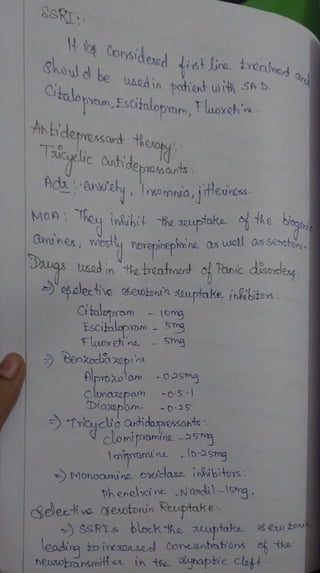 SSRI:-
It is considered first line treatment and
should be used in patient with SAD.
Citalopram, Escitalopram, Fluoxetine.
Antidepressant therapy:-
Tricyclic antidepressants:
Adr :- anxiety, Insomnia, jitteriness.
MOA: They inhibit the reuptake of the biogenic
amines, mostly norepinephrine as well as serotonin.
Drugs used in the treatment of Panic disorders
=) Selective serotonin reuptake inhibitors
Citalopram - 10mg
Escitalopram - 5mg
Fluoxetine - 5mg
=) Benzodiazepine
Alprozolam - 0.25mg
Clonazepam - 0.5-1
Diazepam. - 0.25
=) Tricyclic antidepressants:
Clomipramine - 25mg
Imipramine - 10-25mg
=) Monoamine oxidase inhibitors:
Phenelzine - Nardil - 15mg.
Selective serotonin Reuptake:
=) SSRIs block the reuptake serotonin
leading to increased concentrations of the
neurotransmitter in the synaptic cleft.